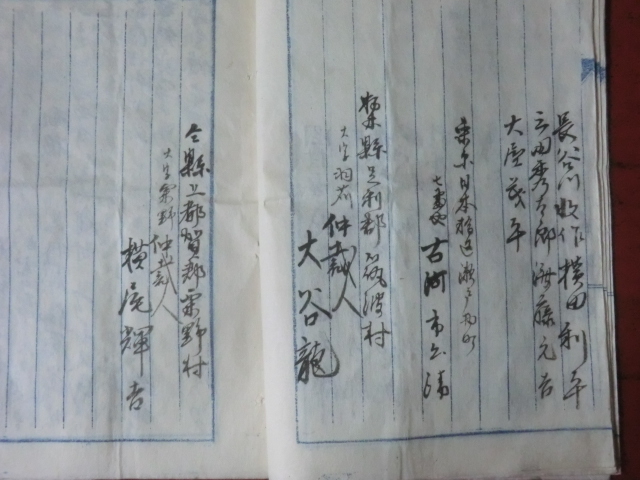 長谷川收作 横田利平
云田秀太郎 海藤元吉
大庭茂平
東京日本橋區瀬戸物町
古河市兵衛
栃木縣足利郡筑波村
大字羽刈 仲裁人
大谷龍
仝縣上都賀郡粟野村
大字粟野 仲裁人
横尾輝吉